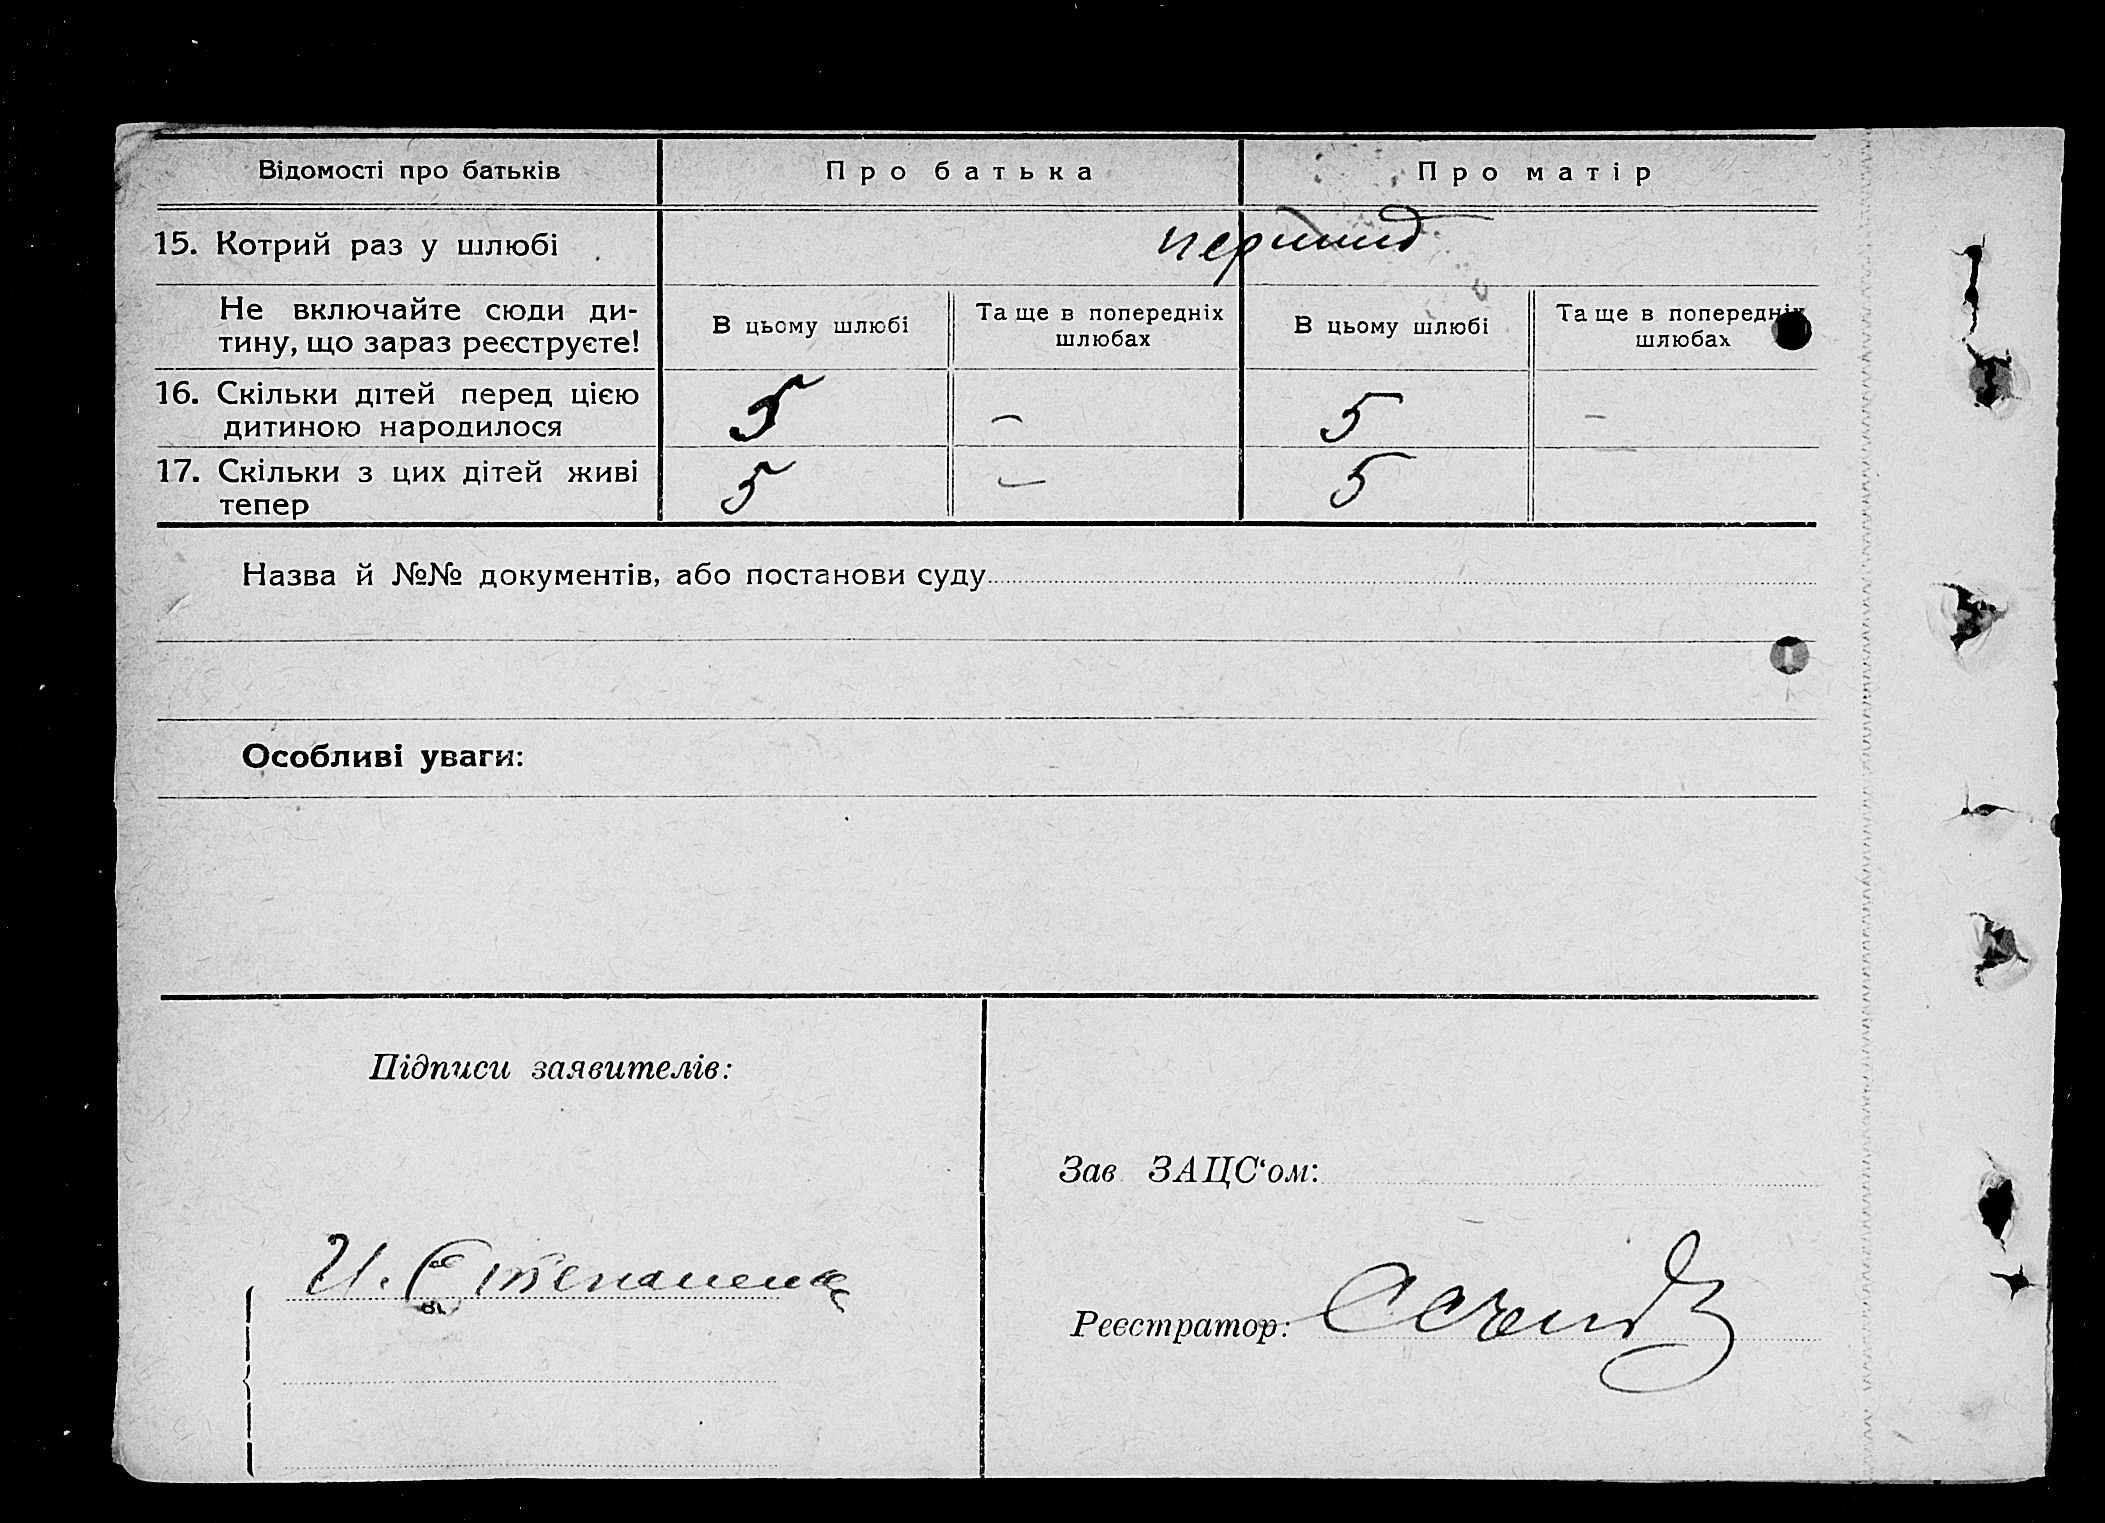 Відомості про батьків Про батька Про матір
15. Котрий раз у шлюбі
перший
Не включайте сюди ди-
тину, що зараз реєструєте!
В цьому шлюбі
Та ще в попередніх
шлюбах
В цьому шлюбі
Та ще в попередніх
шлюбах
16. Скільки дітей перед цією
дитиною народилося
5 – 5 –
17. Скільки з цих дітей живі
тепер
5 – 5
Назва й №№ документів, або постанови суду
Особливі уваги:
Підписи заявителів:
Зав ЗАЦС'ом:
И. Степаненко
Реєстратор: